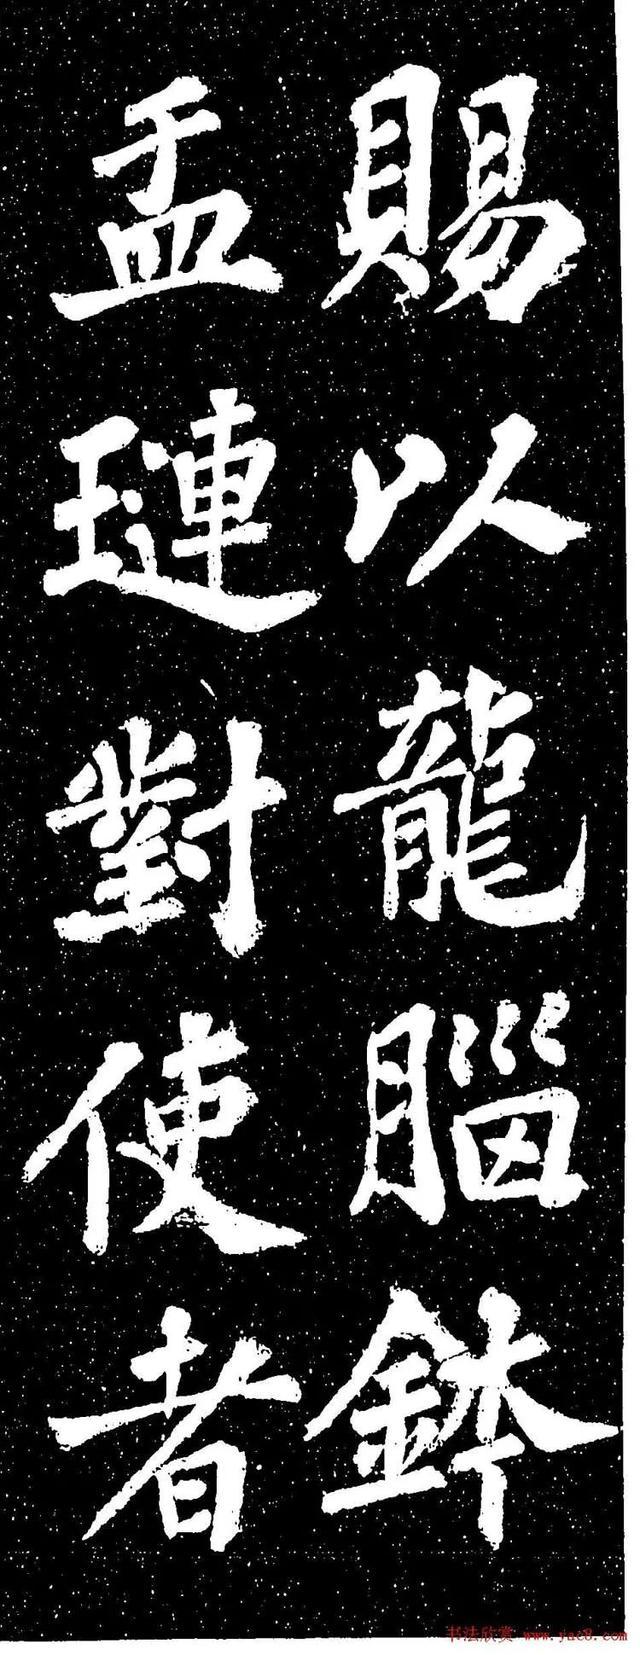 賜以龍腦鉢
盂璉對使者
书法欣赏 www.yac8.com